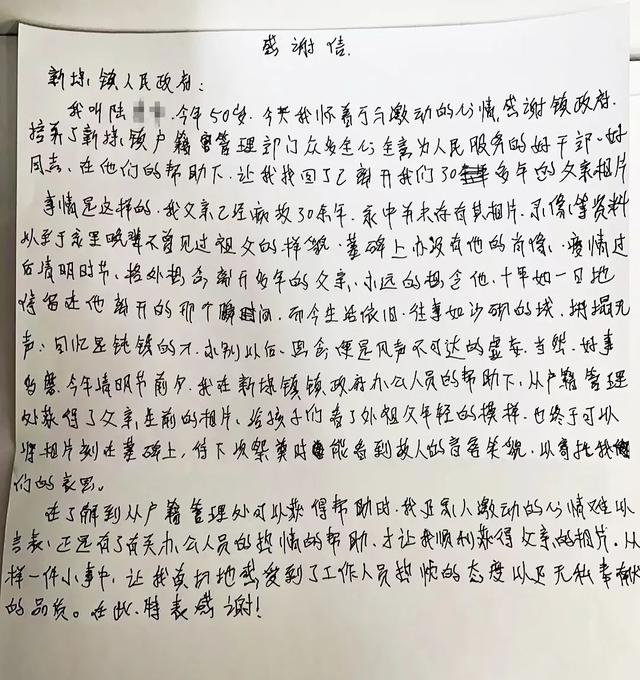 感谢信
新埭镇人民政府：
我叫陆，今年50岁，今天我怀着万分激动的心情，感谢镇政府，
培养了新埭镇户籍管理部门众多全心全意为人民服务的好干部、好
同志，在他们的帮助下，让我找回了已离开我们30多年的父亲相片
事情是这样的，我父亲已经病故30余年，家中并未存有其相片、录像等资料
以至于家里晚辈不曾见过祖父的样貌，墓碑上亦没有他的肖像，疫情过
后清明时节，格外想念离开多年的父亲，永远的想念他，十年如一日地
停留在他离开的那个瞬时间，而今生活依旧，往事如沙砌的城，坍塌无
声，回忆是钝锈的刀，永别以后，思念便是风声不可达的虚妄，当然，好事
多磨，今年清明节前夕，我在新埭镇镇政府办公人员的帮助下，从户籍管理
处获得了父亲生前的相片，给孩子们看了外祖父年轻的模样，也终于可以
将相片刻在墓碑上，待下次祭奠时能看到故人的音容笑貌，以寄托我
们的哀思。
在了解到从户籍管理处可以获得帮助时，我及家人激动的心情难以
言表，正是有了有关办公人员的热情的帮助，才让我顺利获得父亲的相片，从
样一件小事中，让我真切地感受到了工作人员热忱的态度以及无私奉献
的品质。在此，特表感谢！